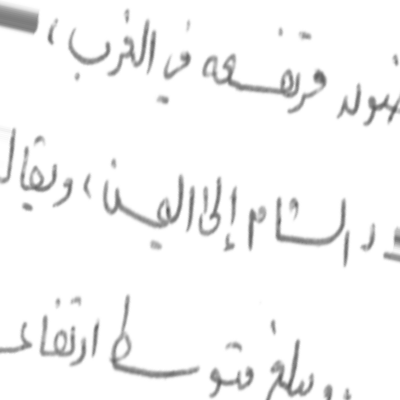 مرتفعه في الغرب،
د الشام إلى اليمن، ويقال
ويبلغ متوسط ارتفاع